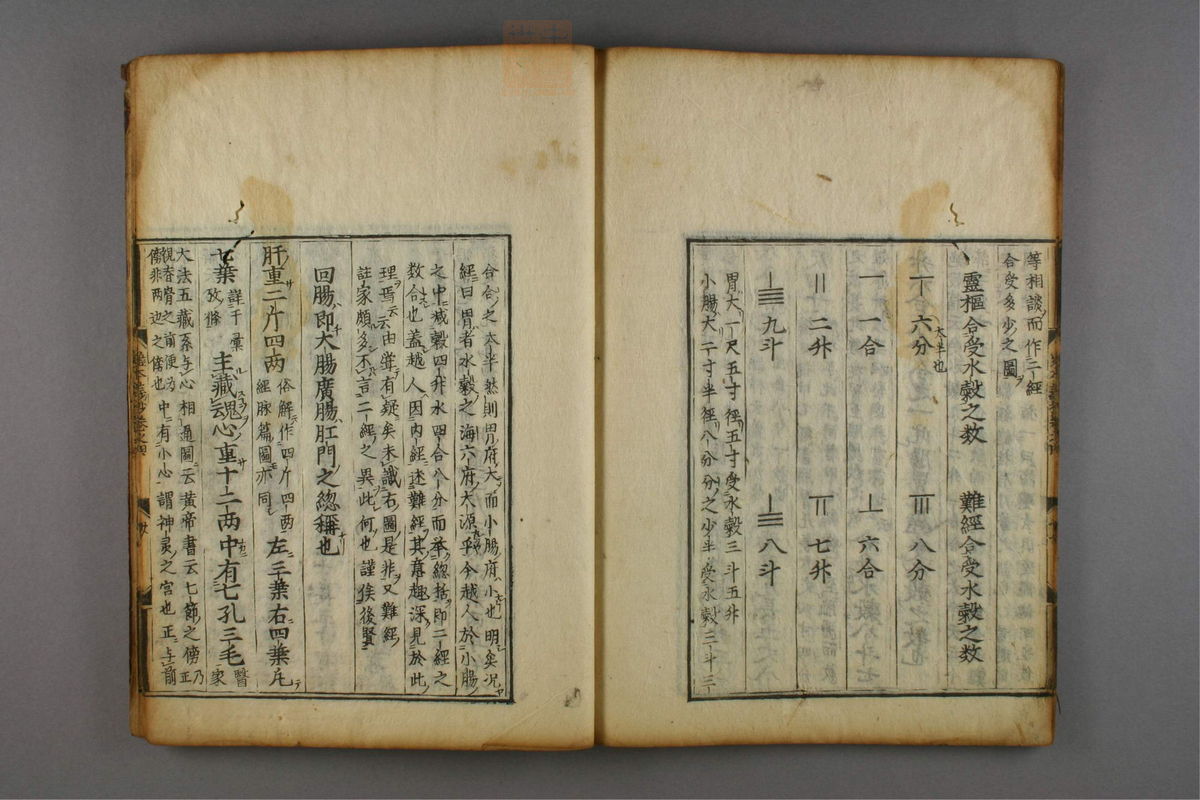 等相談而作二經
合受多少之圖
靈樞合受水穀之数　難經合受水穀之数
六分 大半也　八分
一合　六合
二升　七升
九斗　八斗
胃大一尺五寸径五寸受水穀三斗五升
小腸大二寸半径八分分之少半受水穀三斗三
合合之大半然則胃府大而小腸府小也明矣况
經曰胃者水穀之海六府大源乎今越人於小腸
之中减穀四升水四合八分而举總括即二經之
数合也蓋越人因内經述難經其意趣深見於此
理焉云云由導有疑矣未識右圖是非又難經
註家頗多不言二經之異此何也謹俟後賢
回腸即大腸廣腸肛門之總稱也
肝重二斤四两 俗解作四斤四两 經脉篇圖亦同 左三葉右四葉凡
七葉 詳于彙 攷條 主藏魂心重十二两中有七孔三毛 醫 家
大法五藏系与心相通圖云黄帝書云七節之傍乃正
視脊骨之前便为中有小心謂神灵之宮也正与前
傍非两边之傍也